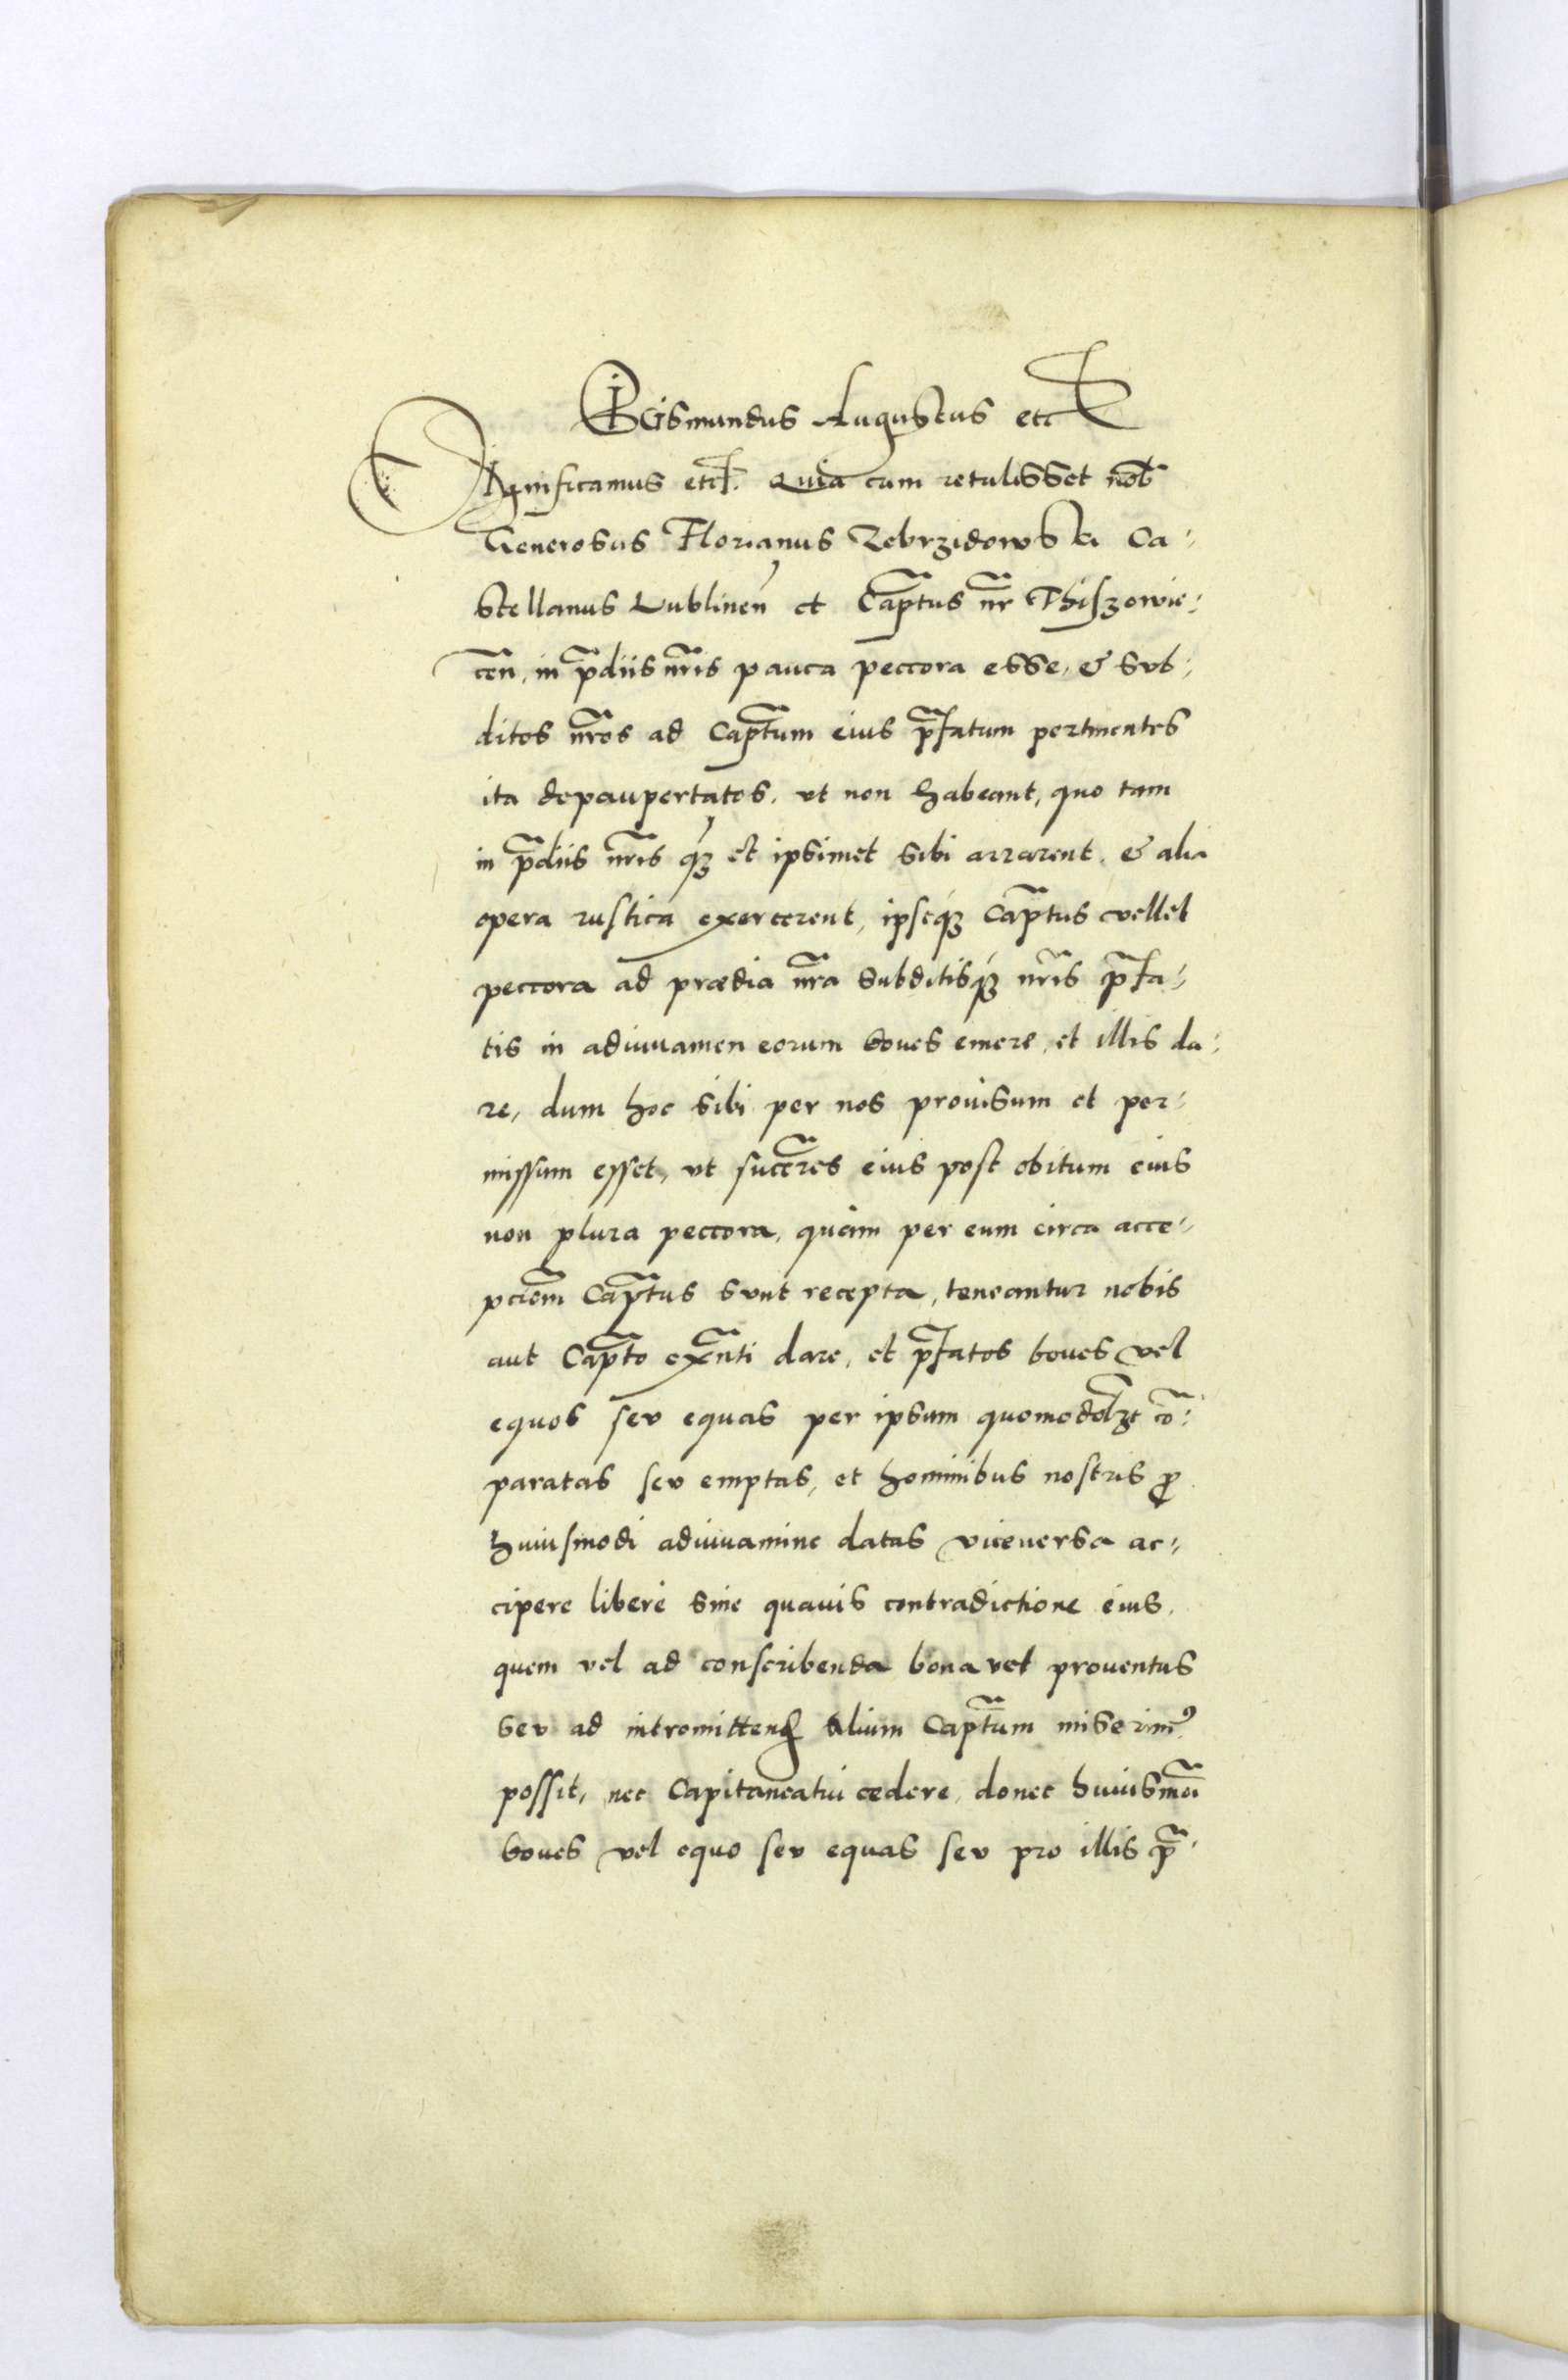 SiGismundus Augustus etc
Significamus etc. Quia cum retulisset nob
Generosus Florianus Zebrzidowski Ca-
stellanus Lublinen et Captus nr Thiszowie-
cen, in pdiis nris pauca peccora esse, & sub-
ditos nros ad Captum eius pfatum pertinentes
ita depaupertatos, ut non habeant, quo tam
in pdiis nris qz et ipsimet sibi ararent, & alia
opera rustica exercerent, ipseqz Captus vellet
peccora ad prædia nra subditisqz nris pfa-
tis in adiuuamen eorum boues emere, et illis da-
re, dum hoc sibi per nos prouisum et per-
missum esset, ut succres eius post obitum eius
non plura peccora, quàm per eum circa acce-
pciom Captus sunt recepta, teneantur nobis
aut Capto exnti dare, et pfatos boues vel
equos seu equas per ipsum quomodolzt co-
paratas seu emptas, et hominibus nostris p
huiusmodi adiuuamine datas viceuersa ac-
cipere liberè sine quauis contradictione eius,
quem vel ad conscribenda bona vel prouentus
seu ad intromittend alium Captum miserim9
possit, nec Capitaneatui cedere, donec huiusmoi
boues vel equo seu equas seu pro illis p-